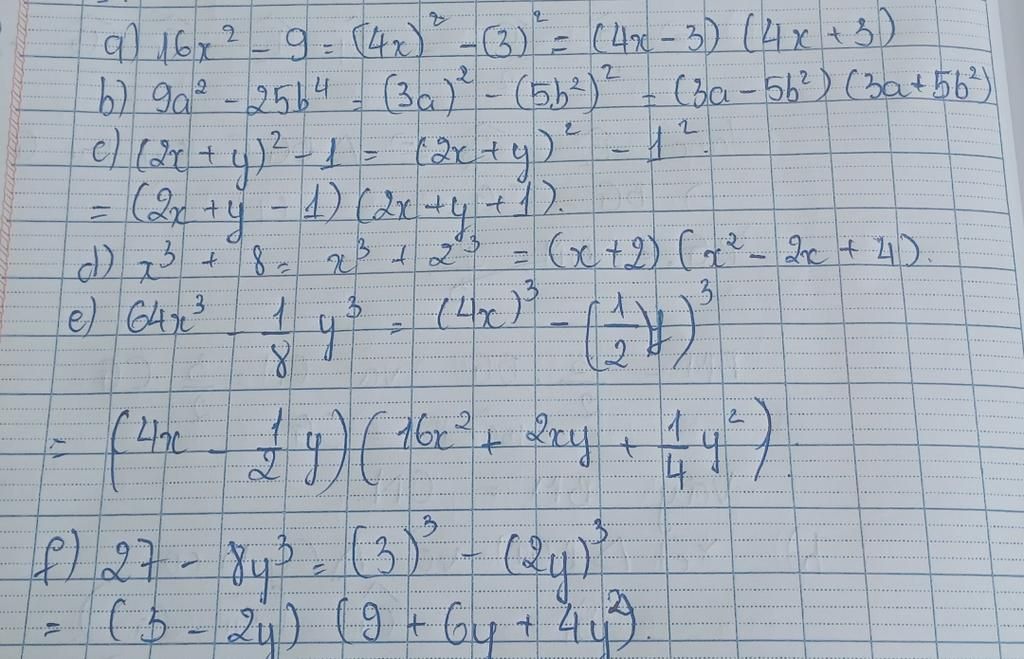 a) 16x² - 9 = (4x)² - (3)² = (4x - 3) (4x + 3)
b) 9a² - 25b⁴ = (3a)² - (5b²)² = (3a - 5b²) (3a + 5b²)
c) (2x + y)² - 1 = (2x + y)² - 1².
= (2x + y - 1) (2x + y + 1).
d) x³ + 8 = x³ + 2³ = (x + 2) (x² - 2x + 4).
e) 64x³ - 1/8 y³ = (4x)³ - (1/2 y)³
= (4x - 1/2 y) (16x² + 2xy + 1/4 y²).
f) 27 - 8y³ = (3)³ - (2y)³
= (3 - 2y) (9 + 6y + 4y²).